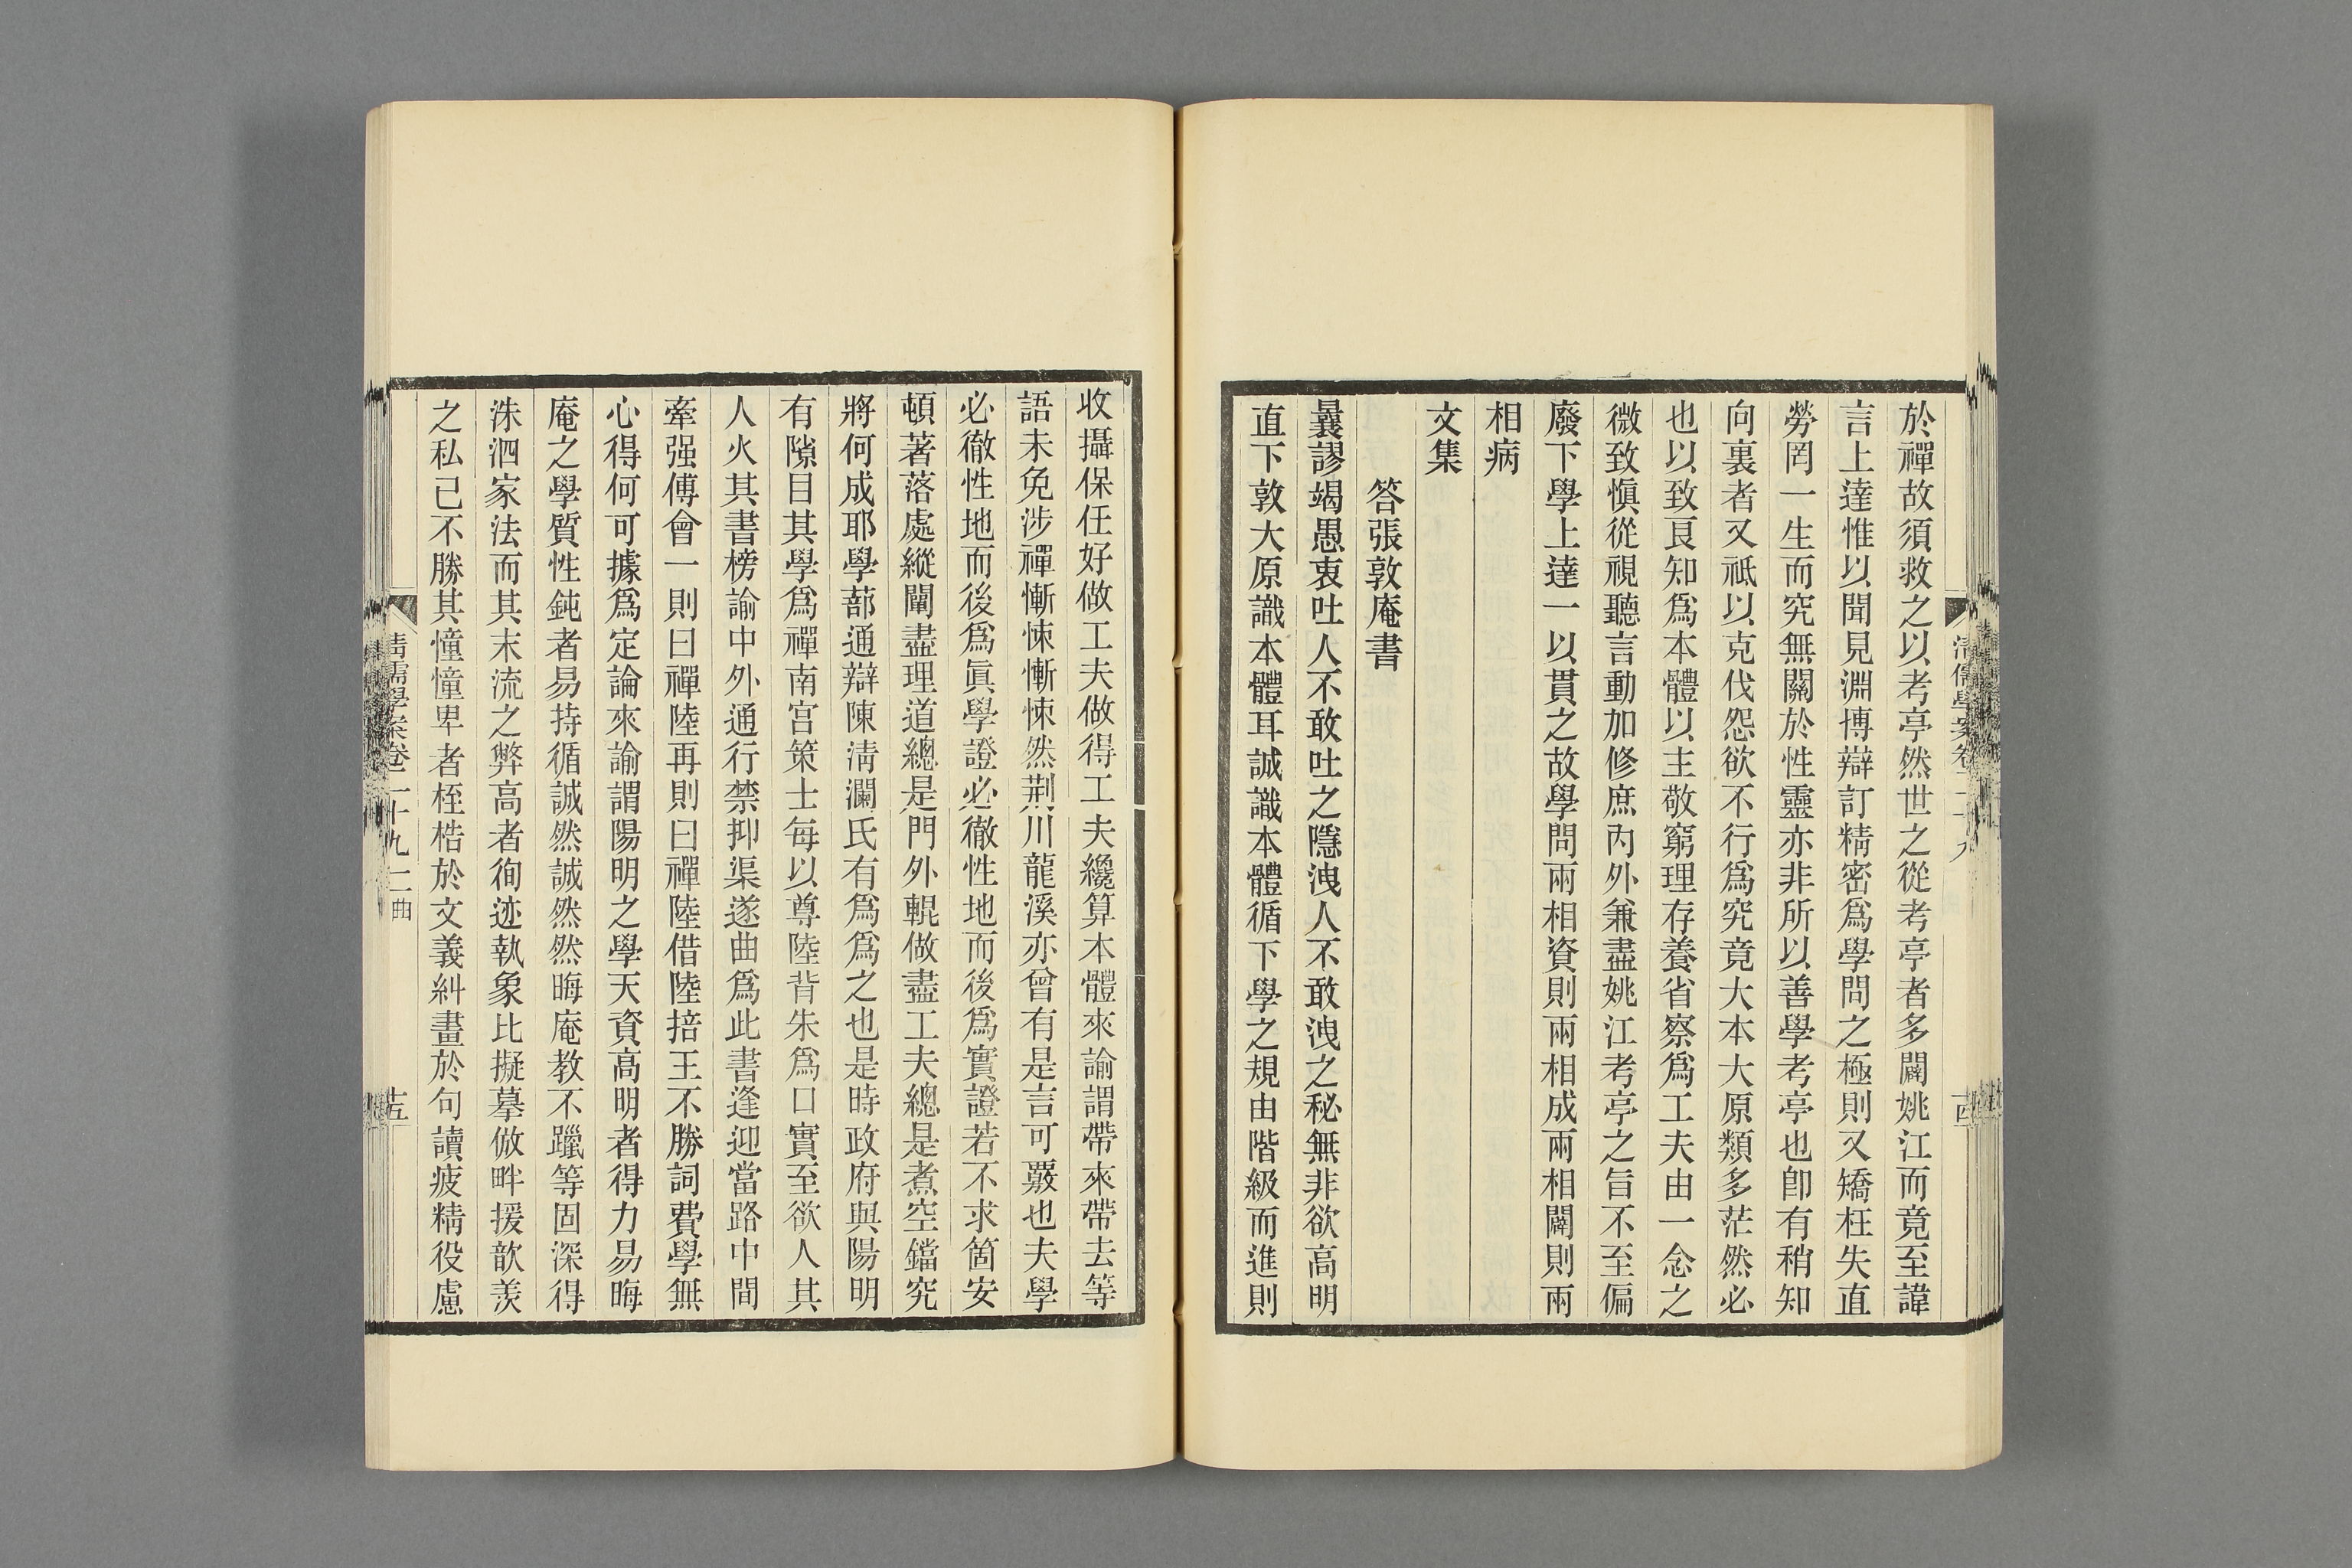 於禪故須救之以考亭然世之從考亭者多闢姚江而竟至諱
言上達惟以聞見淵博辯訂精密爲學問之極則又矯枉失直
勞罔一生而究無關於性靈亦非所以善學考亭也卽有稍知
向裏者又祗以克伐怨欲不行爲究竟大本大原類多茫然必
也以致良知爲本體以主敬窮理存養省察爲工夫由一念之
微致愼從視聽言動加修庶內外兼盡姚江考亭之旨不至偏
廢下學上達一以貫之故學問兩相資則兩相成兩相闢則兩
相病
文集
答張敦庵書
曩謬竭愚衷吐人不敢吐之隱洩人不敢洩之秘無非欲高明
直下敦大原識本體耳誠識本體循下學之規由階級而進則
收攝保任好做工夫做得工夫纔算本體來諭謂帶來帶去等
語未免涉禪慚悚慚悚然荆川龍溪亦曾有是言可覈也夫學
必徹性地而後爲眞學證必徹性地而後爲實證若不求箇安
頓著落處縱闡盡理道總是門外輥做盡工夫總是煮空鐺究
將何成耶學蔀通辯陳淸瀾氏有爲爲之也是時政府與陽明
有隙目其學爲禪南宮策士每以尊陸背朱爲口實至欲人其
人火其書榜諭中外通行禁抑渠遂曲爲此書逢迎當路中間
牽强傅會一則曰禪陸再則曰禪陸借陸掊王不勝詞費學無
心得何可據爲定論來諭謂陽明之學天資高明者得力易晦
庵之學質性鈍者易持循誠然誠然然晦庵教不躐等固深得
洙泗家法而其末流之弊高者徇迹執象比擬摹倣畔援歆羨
之私已不勝其憧憧卑者桎梏於文義糾畫於句讀疲精役慮
清儒學案卷二十九 二曲
十五